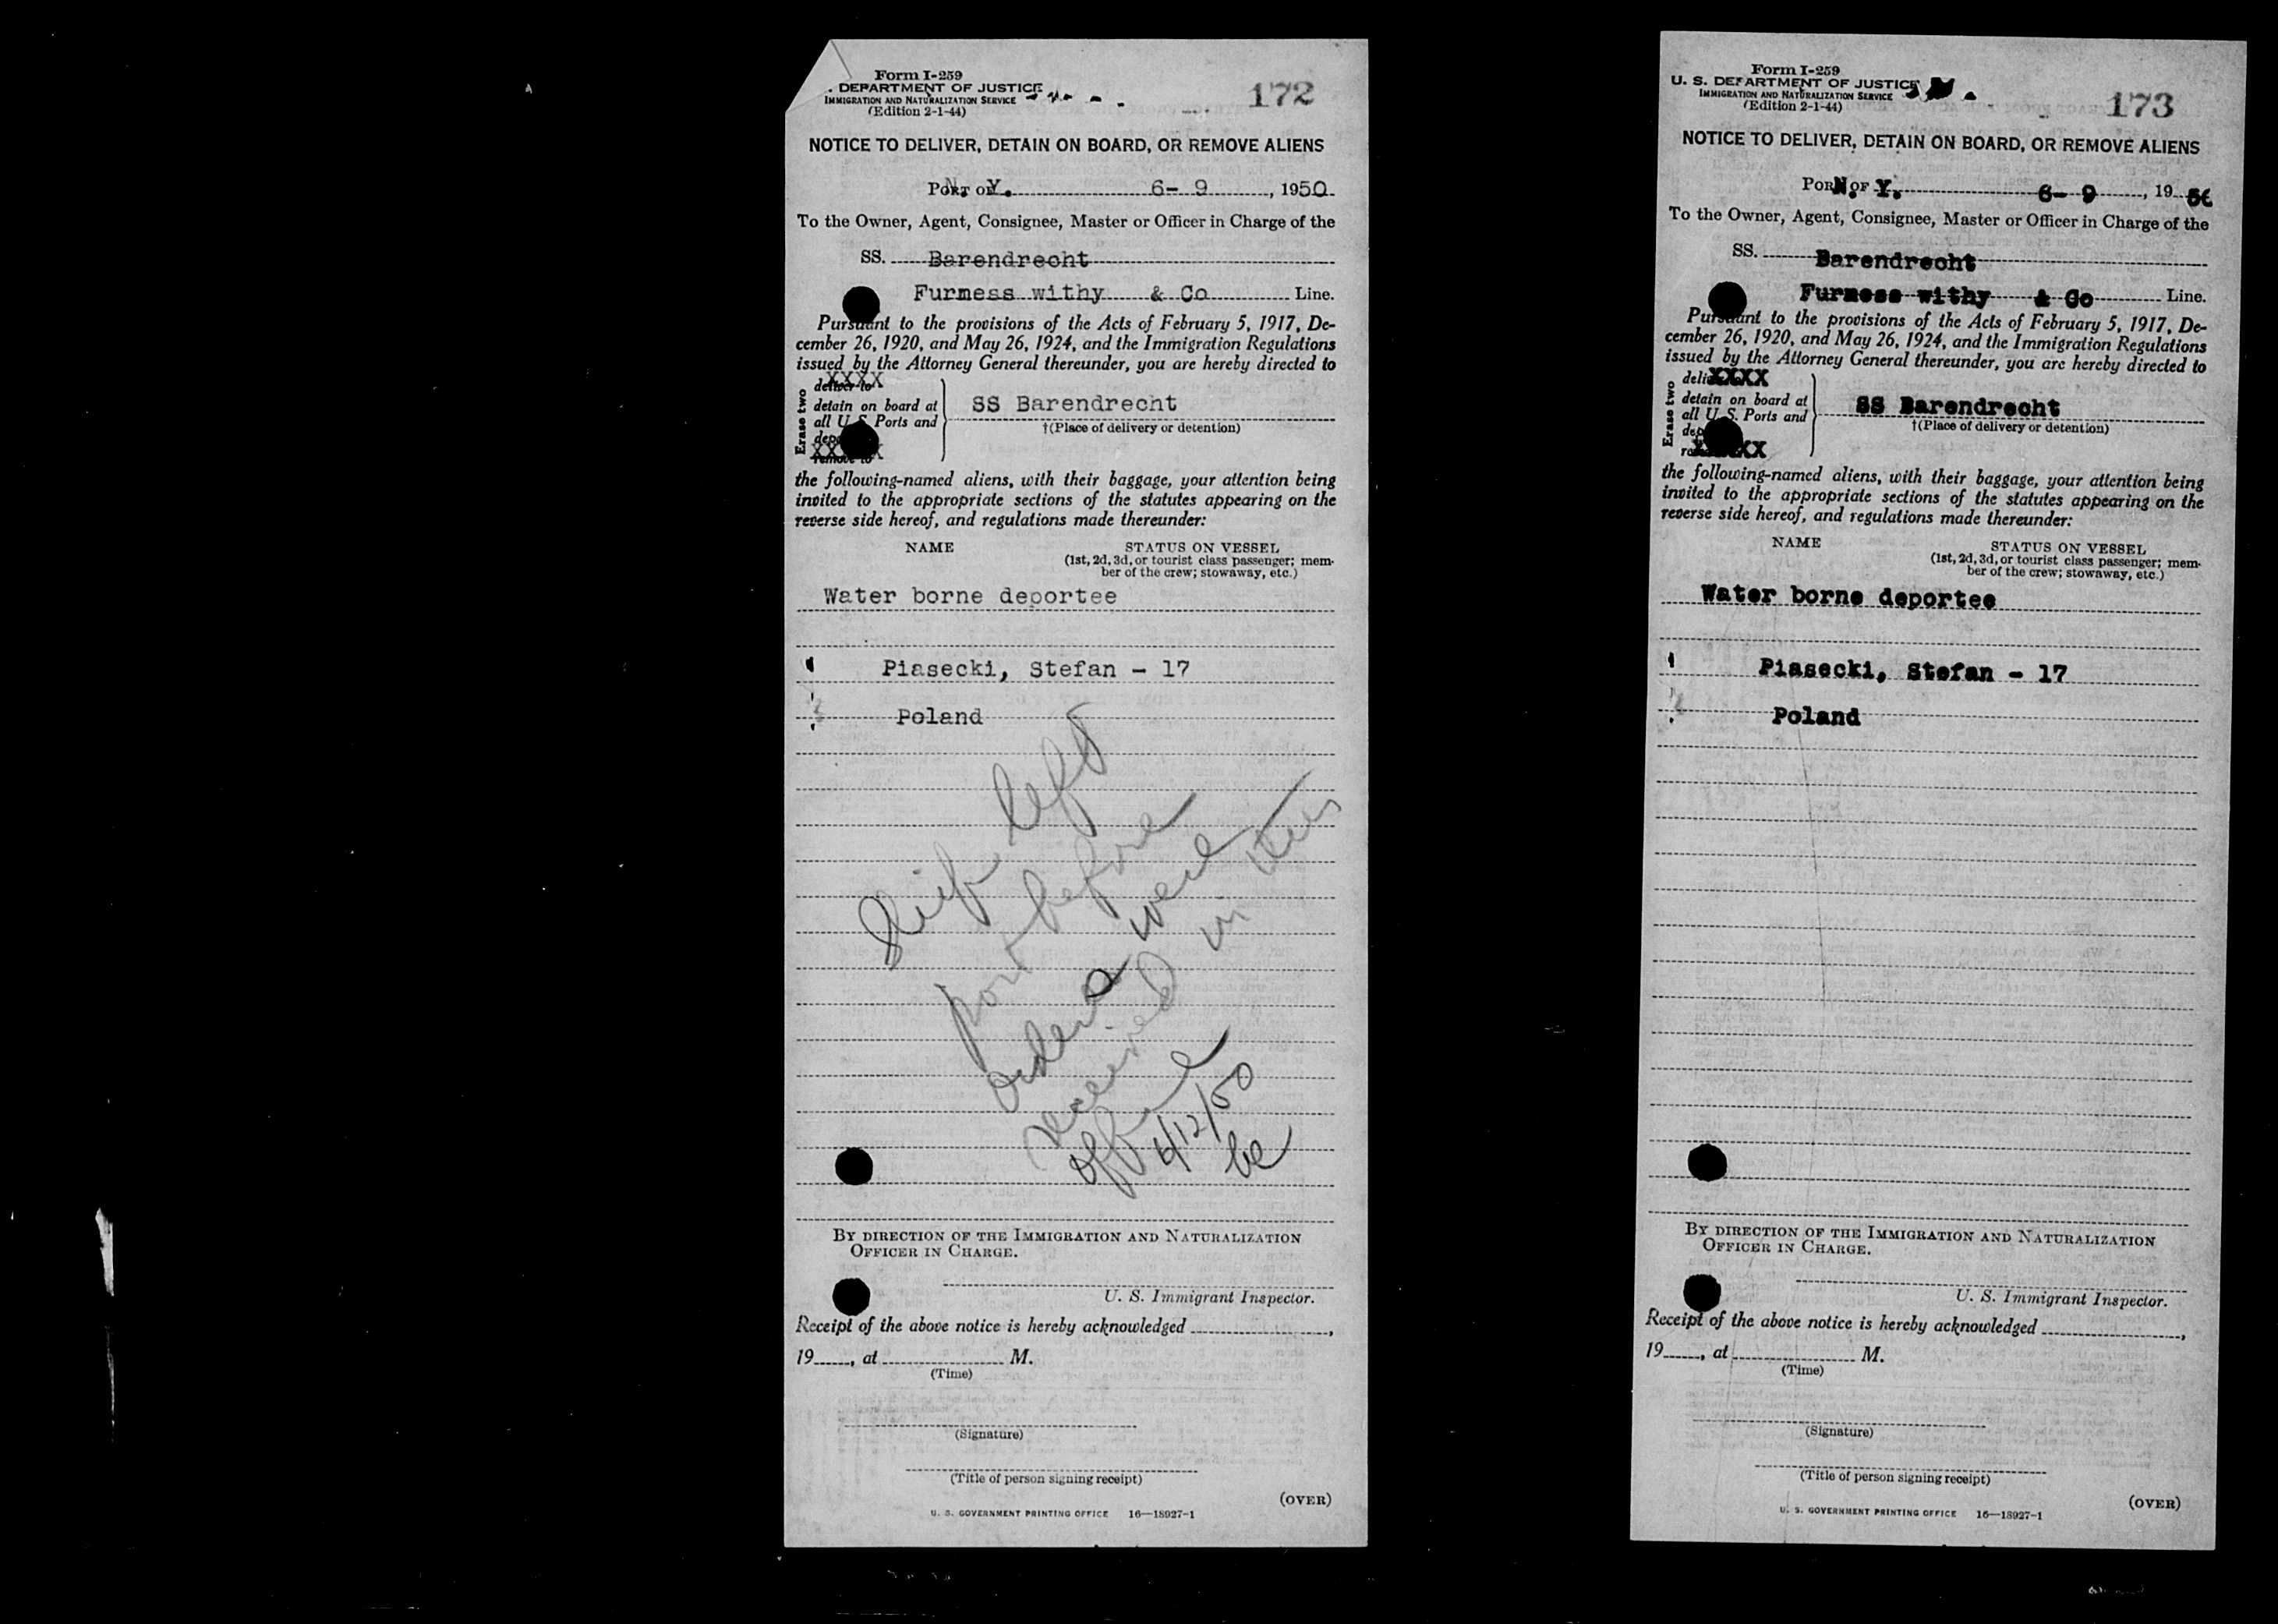 Form I-259
. DEPARTMENT OF JUSTICE
IMMIGRATION AND NATURALIZATION SERVICE
(Edition 2-1-44)
172
NOTICE TO DELIVER, DETAIN ON BOARD, OR REMOVE ALIENS
PORT OF N. Y. 6- 9, 1950
To the Owner, Agent, Consignee, Master or Officer in Charge of the
SS. Barendrecht
Furness withy & Co Line.
Pursuant to the provisions of the Acts of February 5, 1917, De-
cember 26, 1920, and May 26, 1924, and the Immigration Regulations
issued by the Attorney General thereunder, you are hereby directed to
Erase two
deliver to XXXX
detain on board at
all U. S. Ports and
SS Barendrecht
†(Place of delivery or detention)
remove to
the following-named aliens, with their baggage, your attention being
invited to the appropriate sections of the statutes appearing on the
reverse side hereof, and regulations made thereunder:
NAME STATUS ON VESSEL
(1st, 2d, 3d, or tourist class passenger; mem-
ber of the crew; stowaway, etc.)
Water borne deportee
Piasecki, Stefan - 17
Poland
Ship left
port before
orders were
received in this
office
6/12/50
be
BY DIRECTION OF THE IMMIGRATION AND NATURALIZATION
OFFICER IN CHARGE.
U. S. Immigrant Inspector.
Receipt of the above notice is hereby acknowledged ,
19 , at M.
(Time)
(Signature)
(Title of person signing receipt)
(OVER)
U. S. GOVERNMENT PRINTING OFFICE 16—18927-1
Form I-259
U. S. DEPARTMENT OF JUSTICE
IMMIGRATION AND NATURALIZATION SERVICE
(Edition 2-1-44)
173
NOTICE TO DELIVER, DETAIN ON BOARD, OR REMOVE ALIENS
PORT OF N. Y. 6- 9, 1950
To the Owner, Agent, Consignee, Master or Officer in Charge of the
SS. Barendrecht
Furness withy & Co Line.
Pursuant to the provisions of the Acts of February 5, 1917, De-
cember 26, 1920, and May 26, 1924, and the Immigration Regulations
issued by the Attorney General thereunder, you are hereby directed to
Erase two
XXXX
detain on board at
all U. S. Ports and
SS Barendrecht
†(Place of delivery or detention)
the following-named aliens, with their baggage, your attention being
invited to the appropriate sections of the statutes appearing on the
reverse side hereof, and regulations made thereunder:
NAME STATUS ON VESSEL
(1st, 2d, 3d, or tourist class passenger; mem-
ber of the crew; stowaway, etc.)
Water borne deportee
Piasecki, Stefan - 17
Poland
BY DIRECTION OF THE IMMIGRATION AND NATURALIZATION
OFFICER IN CHARGE.
U. S. Immigrant Inspector.
Receipt of the above notice is hereby acknowledged ,
19 , at M.
(Time)
(Signature)
(Title of person signing receipt)
(OVER)
U. S. GOVERNMENT PRINTING OFFICE 16—18927-1